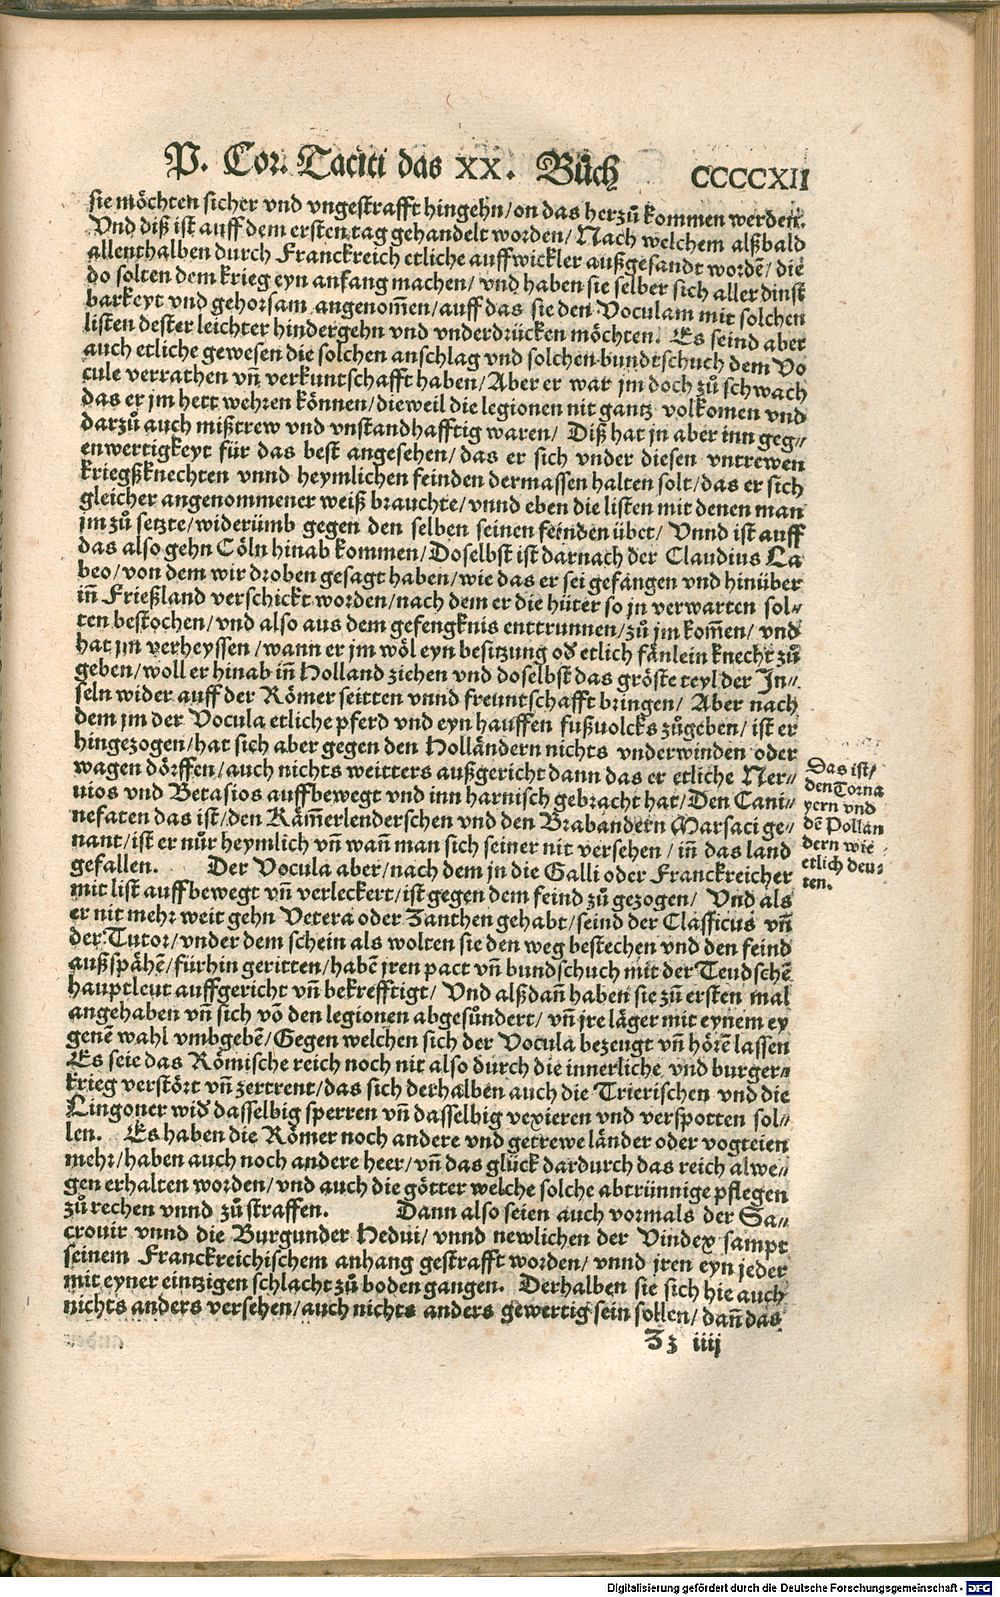 P. Cor. Taciti das XX. Bůch CCCCXII
sie möchten sicher vnd vngestrafft hingehn/on das herzů kommen werden.
Vnd diß ist auff dem ersten tag gehandelt worden/ Nach welchem alßbald
allenthalben durch Franckreich etliche auffwickler außgesandt wordẽ/ die
do solten dem krieg eyn anfang machen/ vnd haben sie selber sich aller dinst
barkeyt vnd gehorsam angenom̃en/ auff das sie den Voculam mit solchen
listen dester leichter hindergehn vnd vnderdrücken möchten. Es seind aber
auch etliche gewesen die solchen anschlag vnd solchen bundtschuch dem Vo
cule verrathen vñ verkuntschafft haben/ Aber er war jm doch zů schwach
das er jm hett wehren können/ dieweil die legionen nit gantz volkomen vnd
darzů auch mißtrew vnd vnstandhafftig waren/ Diß hat jn aber inn geg⸗
enwertigkeyt für das best angesehen/ das er sich vnder diesen vntrewen
kriegßknechten vnnd heymlichen feinden dermassen halten solt/ das er sich
gleicher angenommener weiß brauchte/ vnnd eben die listen mit denen man
jm zů setzte/ widerümb gegen den selben seinen feinden übet/ Vnnd ist auff
das also gehn Cöln hinab kommen/ Doselbst ist darnach der Claudius La
beo/ von dem wir droben gesagt haben/ wie das er sei gefangen vnd hinüber
iñ Frießland verschickt worden/ nach dem er die hüter so jn verwarten sol⸗
ten bestochen/ vnd also aus dem gefengknis enttrunnen/ zů jm kom̃en/ vnd
hat jm verheyssen/ wann er jm wöl eyn besitzung oď etlich fänlein knecht zů
geben/ woll er hinab iñ Holland ziehen vnd doselbst das gröste teyl der In⸗
seln wider auff der Römer seitten vnnd freuntschafft bringen/ Aber nach
dem jm der Vocula etliche pferd vnd eyn hauffen fußuolcks zůgeben/ ist er
hingezogen/ hat sich aber gegen den Holländern nichts vnderwinden oder
wagen dörffen/ auch nichts weitters außgericht dann das er etliche Ner⸗
uios vnd Betasios auffbewegt vnd inn harnisch gebracht hat/ Den Cani⸗
nefaten das ist/ den Käm̃erlenderschen vnd den Brabandern Marsaci ge⸗
nant/ ist er nůr heymlich vñ wañ man sich seiner nit versehen/ iñ das land
gefallen. Der Vocula aber/ nach dem jn die Galli oder Franckreicher
mit list auffbewegt vñ verleckert/ ist gegen dem feind zů gezogen/ Vnd als
er nit mehr weit gehn Vetera oder Zanthen gehabt/ seind der Classicus vñ
der Tutor/ vnder dem schein als wolten sie den weg bestechen vnd den feind
außspähẽ/ fürhin geritten/ habẽ jren pact vñ bundschuch mit der Teudschẽ
hauptleut auffgericht vñ bekrefftigt/ Vnd alßdañ haben sie zů ersten mal
angehaben vñ sich võ den legionen abgesündert/ vñ jre läger mit eynem ey
genẽ wahl vmbgebẽ/ Gegen welchen sich der Vocula bezeugt vñ hörẽ lassen
Es seie das Römische reich noch nit also durch die innerliche vnd burger⸗
krieg verstört vñ zertrent/ das sich derhalben auch die Trierischen vnd die
Lingoner wiď dasselbig sperren vñ dasselbig vexieren vnd verspotten sol⸗
len. Es haben die Römer noch andere vnd getrewe länder oder vogteien
mehr/ haben auch noch andere heer/ vñ das glück dardurch das reich alwe⸗
gen erhalten worden/ vnd auch die götter welche solche abtrünnige pflegen
zů rechen vnnd zů straffen. Dann also seien auch vormals der Sa⸗
crouir vnnd die Burgunder Hedui/ vnnd newlichen der Vindex sampt
seinem Franckreichischem anhang gestrafft worden/ vnnd jren eyn jeder
mit eyner eintzigen schlacht zů boden gangen. Derhalben sie sich hie auch
nichts anders versehen/ auch nichts anders gewertig sein sollen/ dañ das
Zz iiij
Das ist/
den Torna
yern vnd
dẽ Pollan
dern wie
etlich deu⸗
ten.
Digitalisierung gefördert durch die Deutsche Forschungsgemeinschaft - DFG